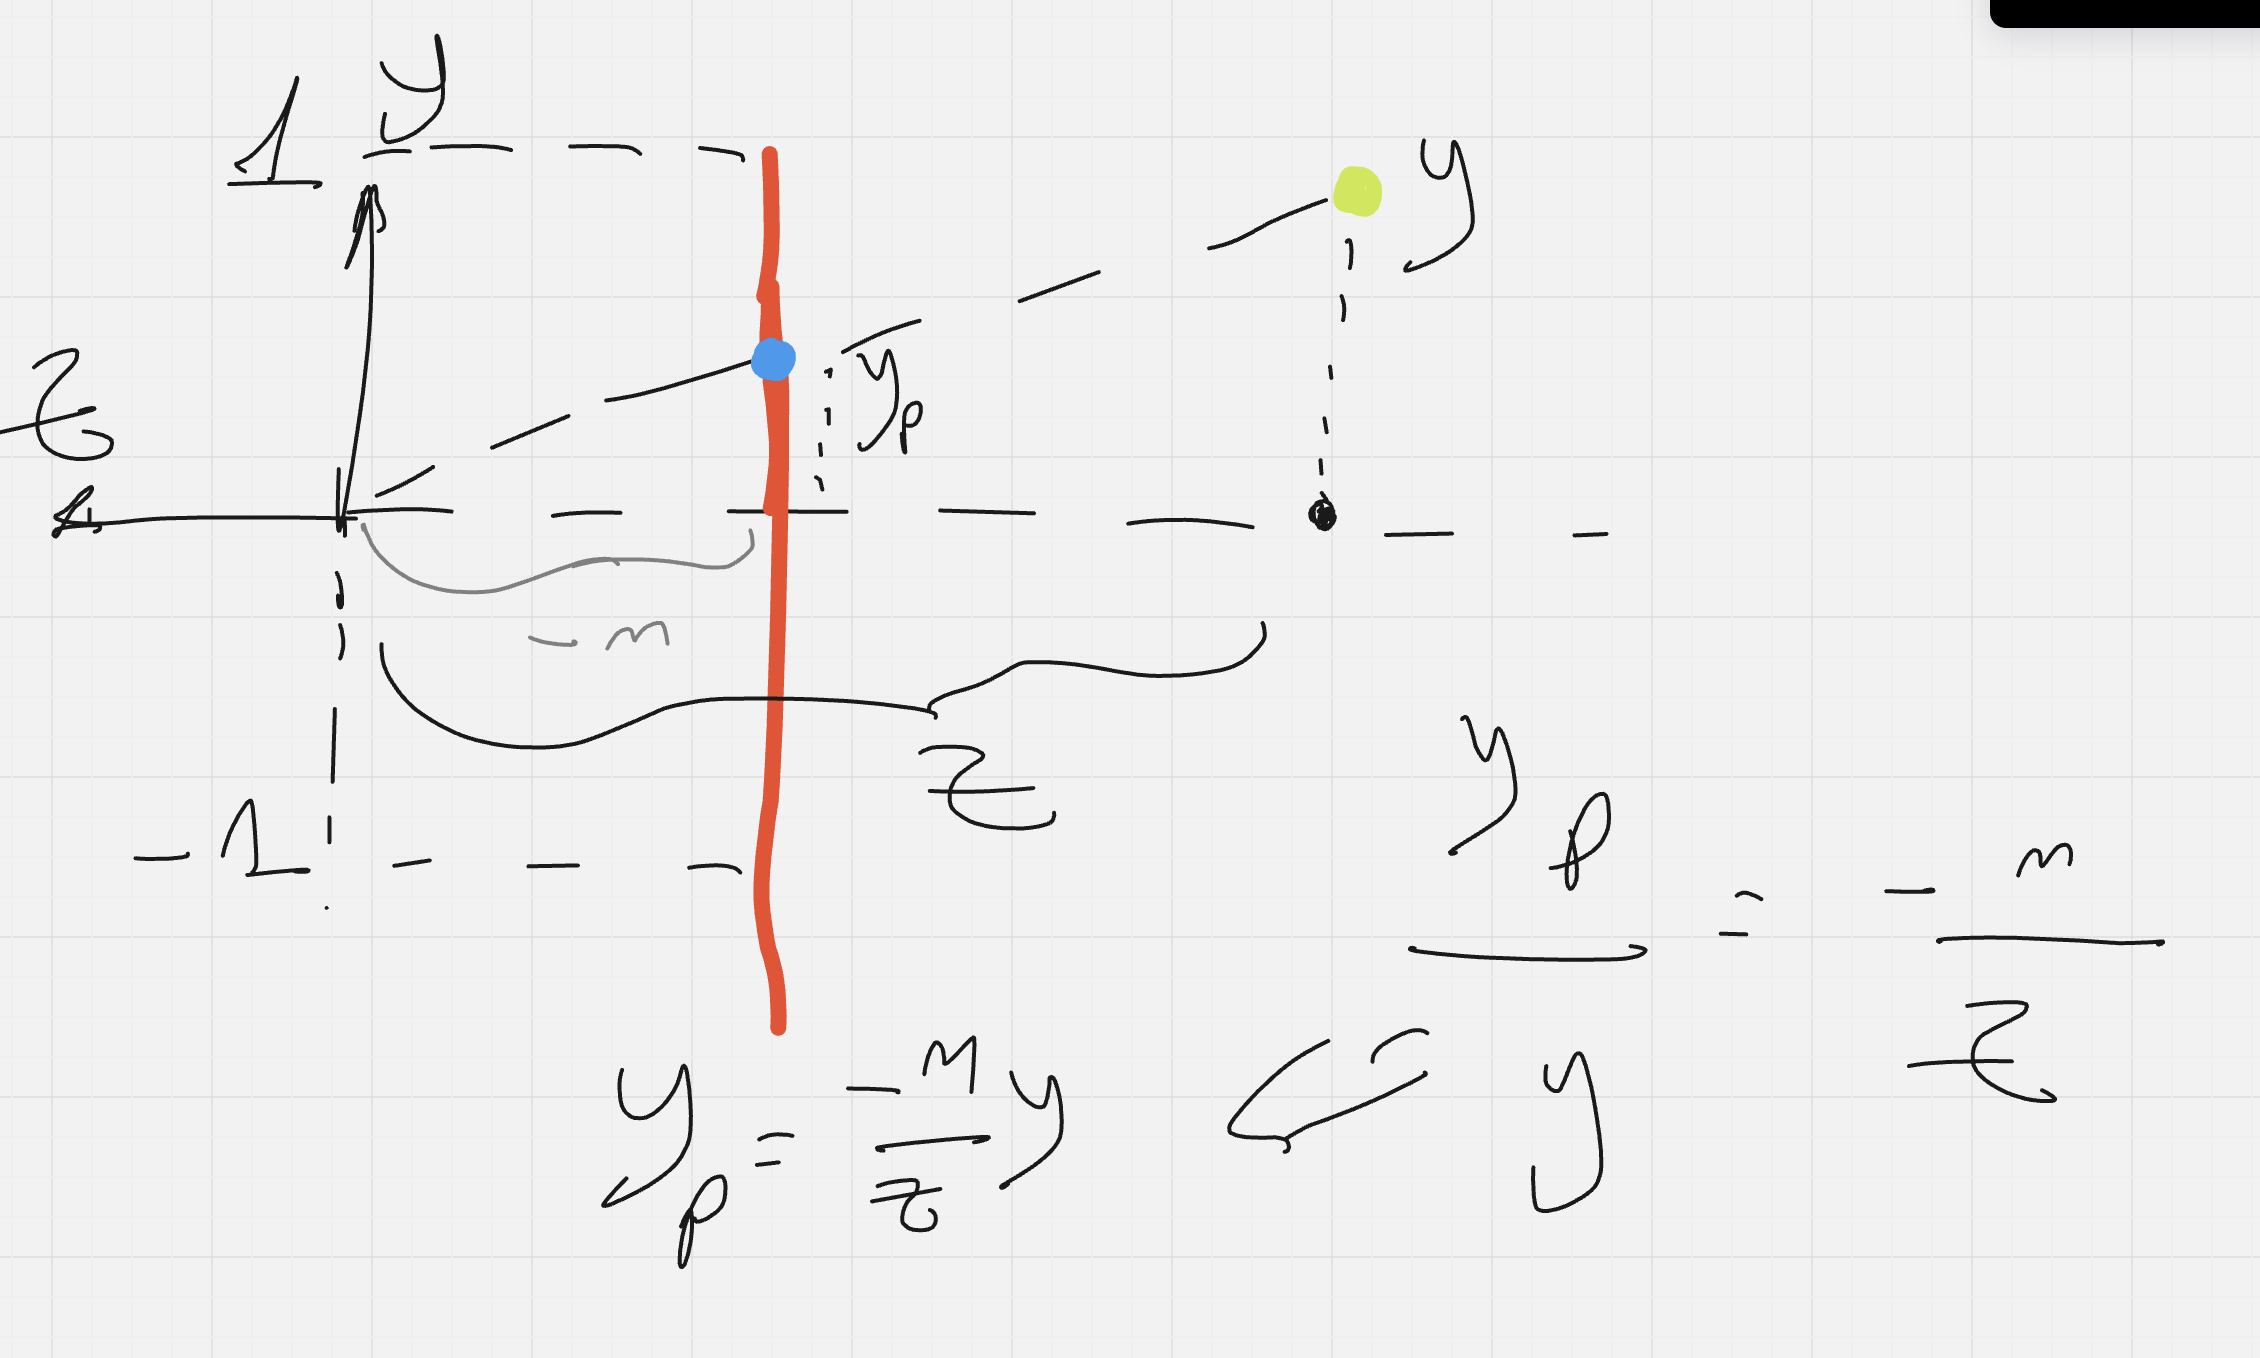 y
1
y
z
y_p
-m
z
-1
y_p / y = -m / z
y_p = -m/z y